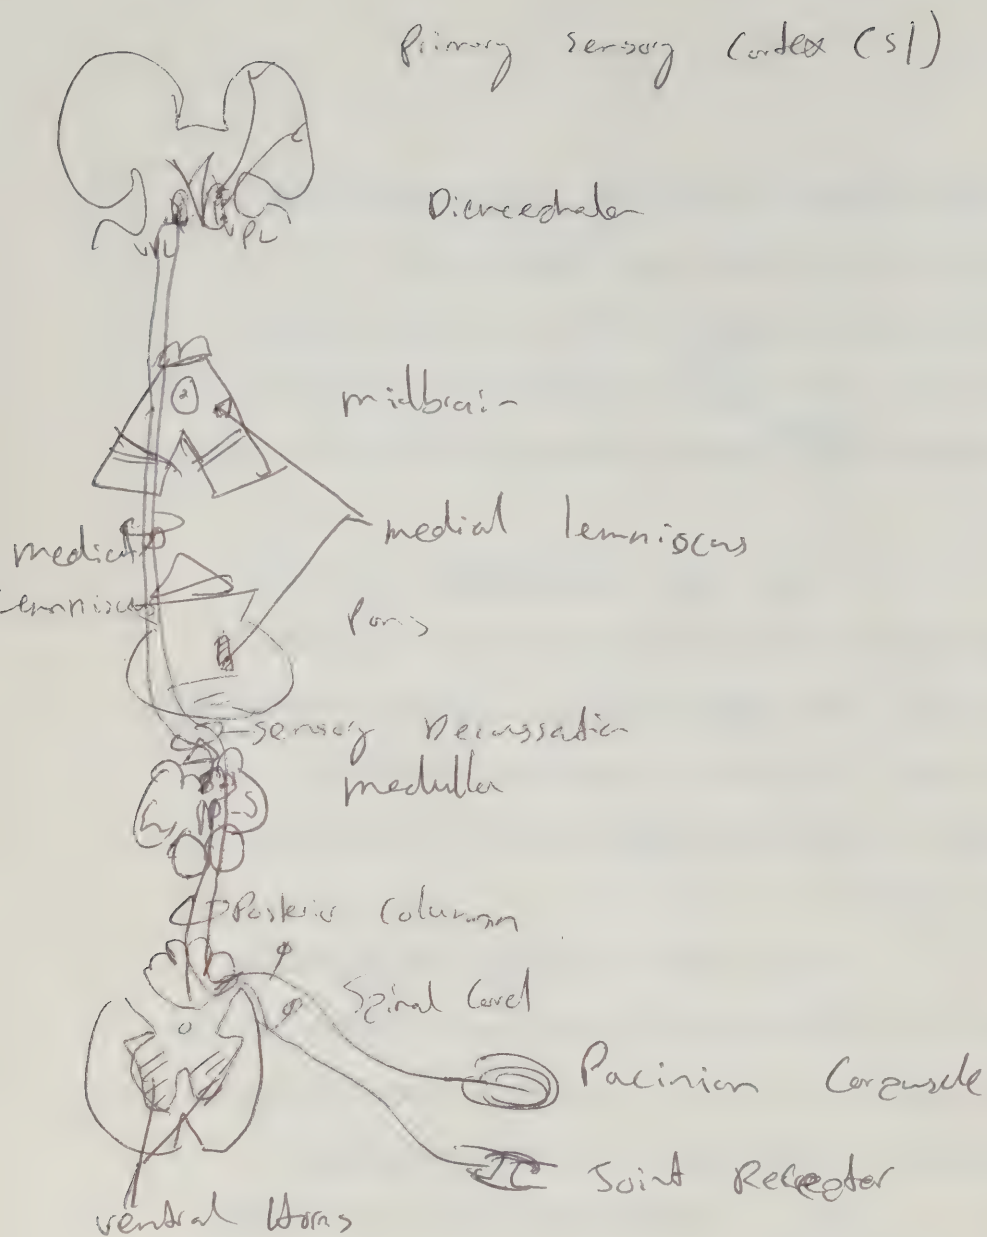 Primary sensory Cortex (S1)
Diencephalon
VPL
VPL
midbrain
medial lemniscus
medial
Lemniscus
Pons
sensory Decussation
medulla
Posterior Column
Spinal Cord
Pacinian Corpuscle
Joint Receptor
ventral Horns